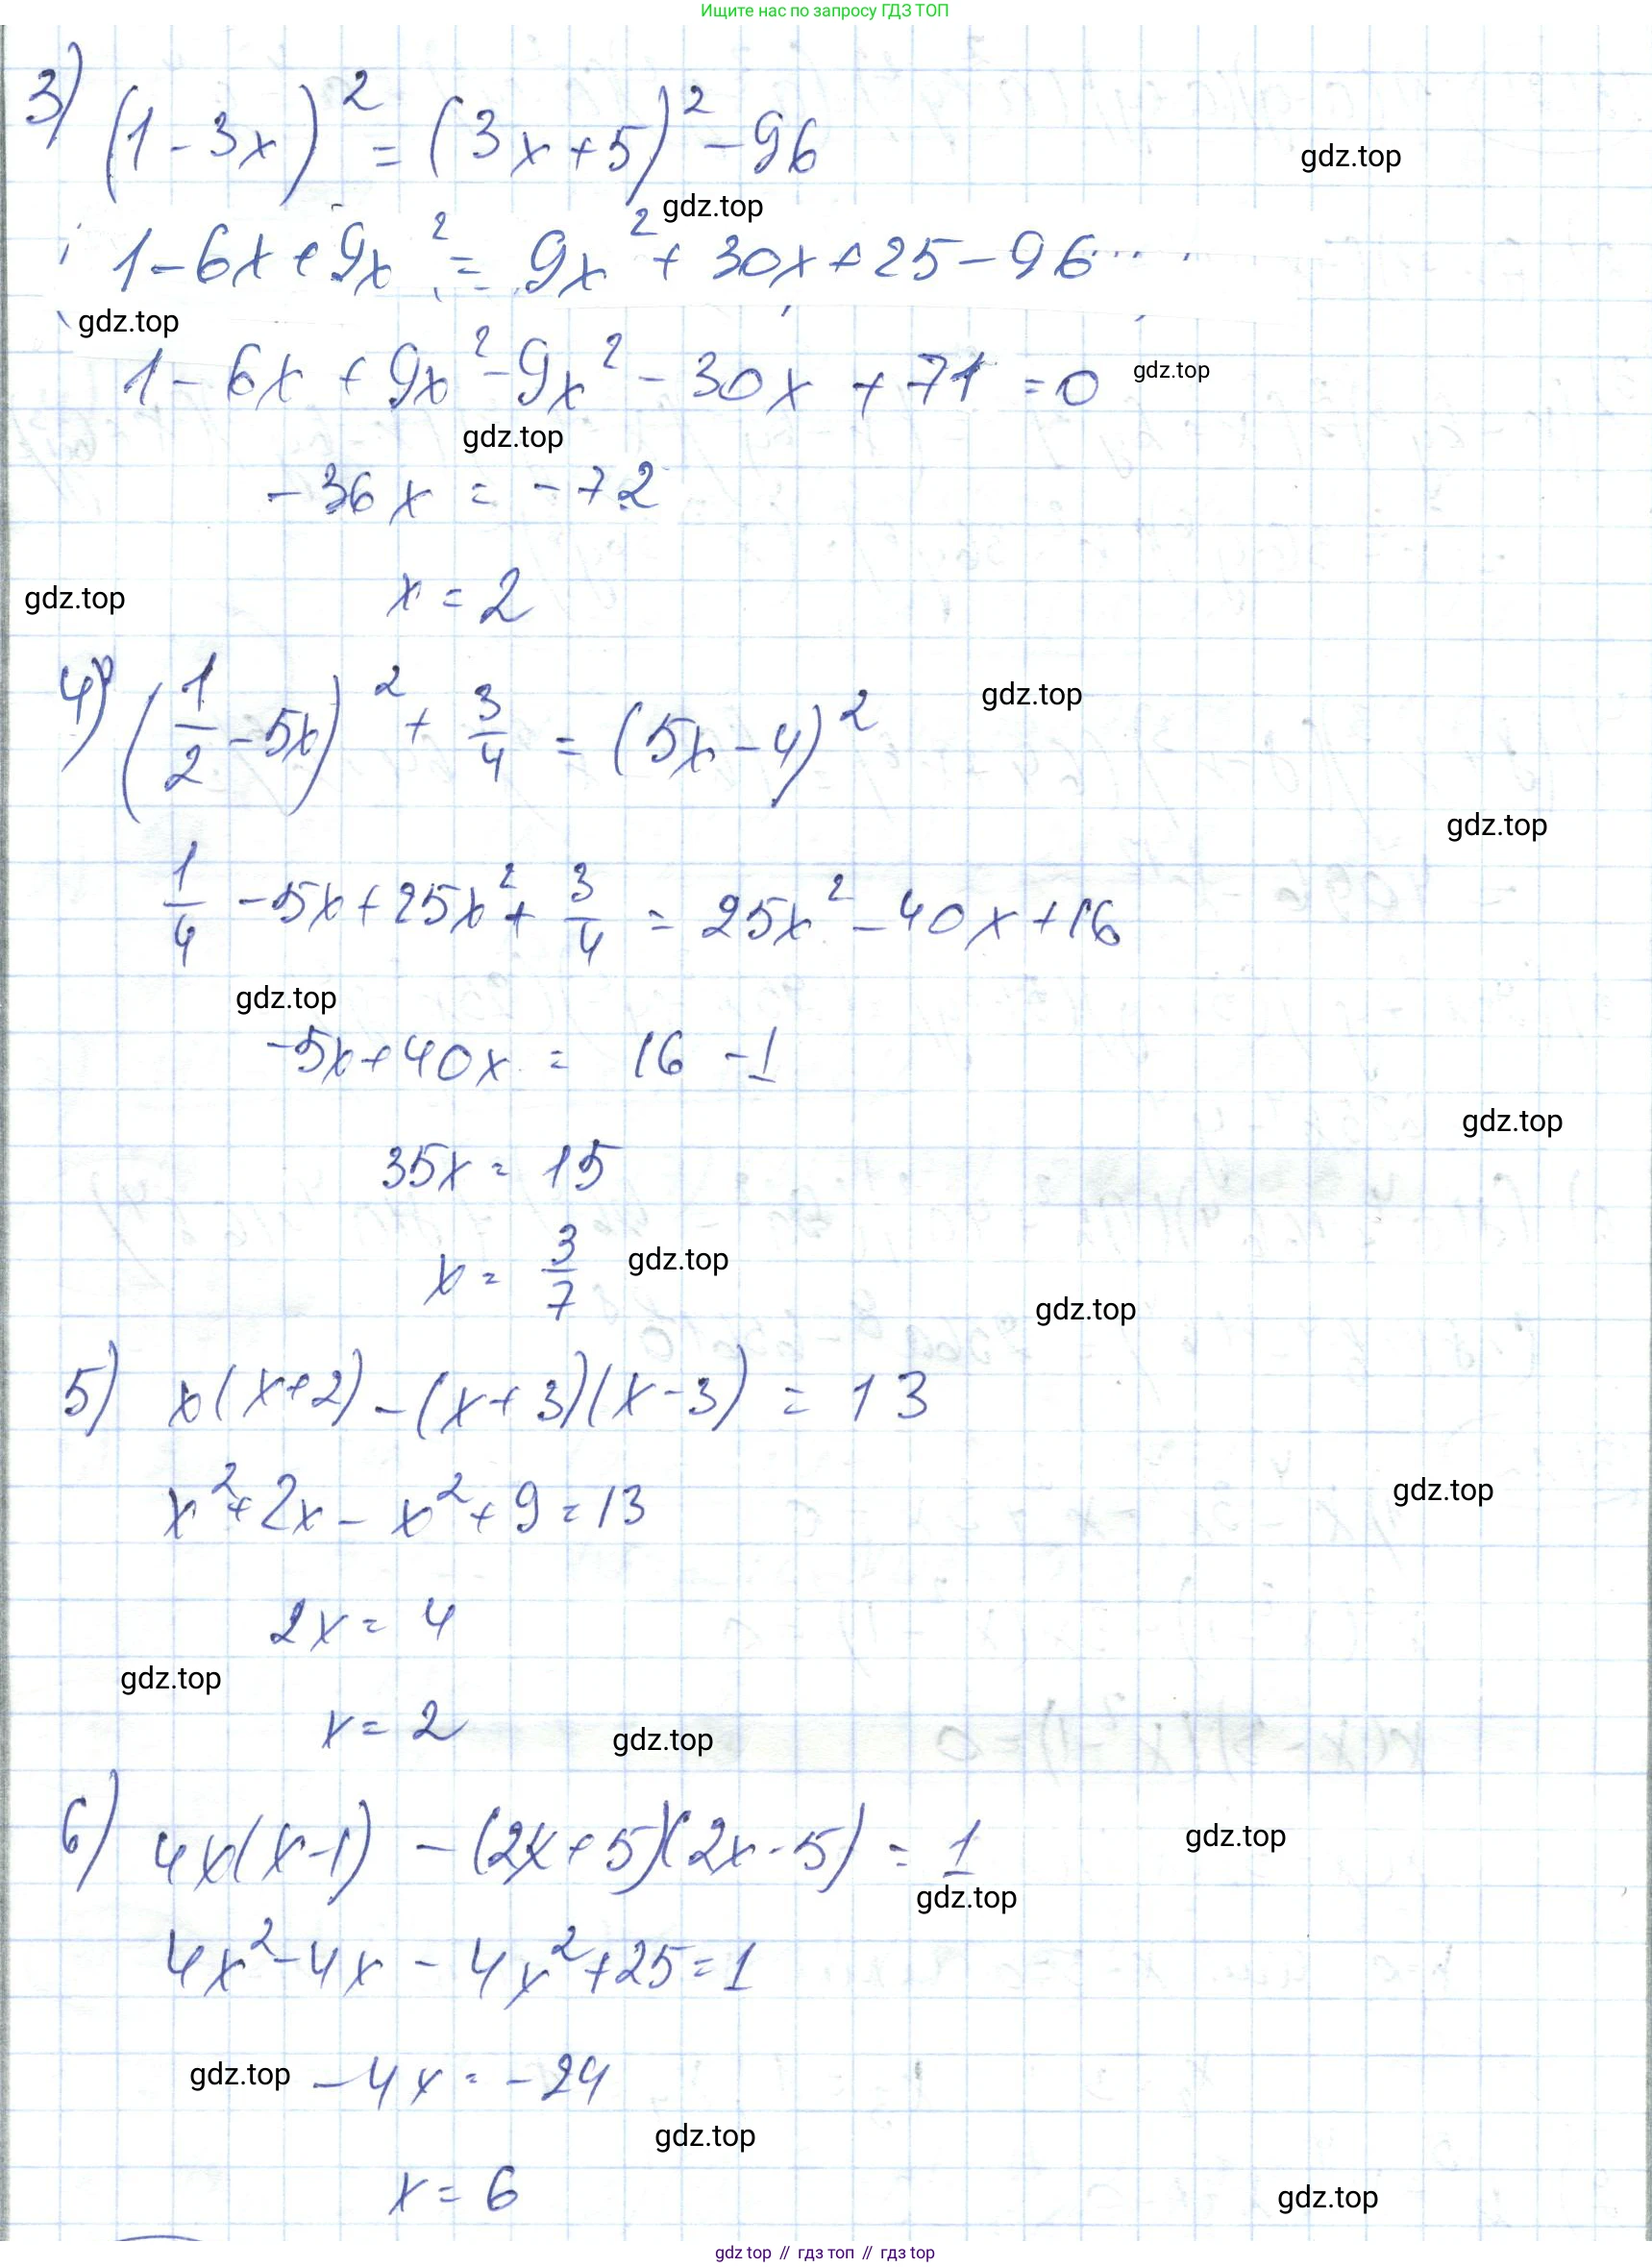 Ищите нас по запросу ГДЗ ТОП
3) (1-3x)² = (3x+5)² - 96
gdz.top
gdz.top
1-6x+9x² = 9x² + 30x + 25 - 96
gdz.top
1-6x + 9x² - 9x² - 30x + 71 = 0
gdz.top
gdz.top
-36x = -72
x = 2
gdz.top
4) (1/2 - 5x)² + 3/4 = (5x-4)²
gdz.top
gdz.top
1/4 - 5x + 25x² + 3/4 = 25x² - 40x + 16
gdz.top
-5x + 40x = 16 - 1
gdz.top
35x = 15
x = 3/7
gdz.top
gdz.top
5) x(x+2) - (x+3)(x-3) = 13
gdz.top
x² + 2x - x² + 9 = 13
2x = 4
gdz.top
x = 2
gdz.top
6) 4x(x-1) - (2x+5)(2x-5) = 1
gdz.top
gdz.top
4x² - 4x - 4x² + 25 = 1
gdz.top
-4x = -24
gdz.top
x = 6
gdz.top
gdz top // гдз топ // гдз top